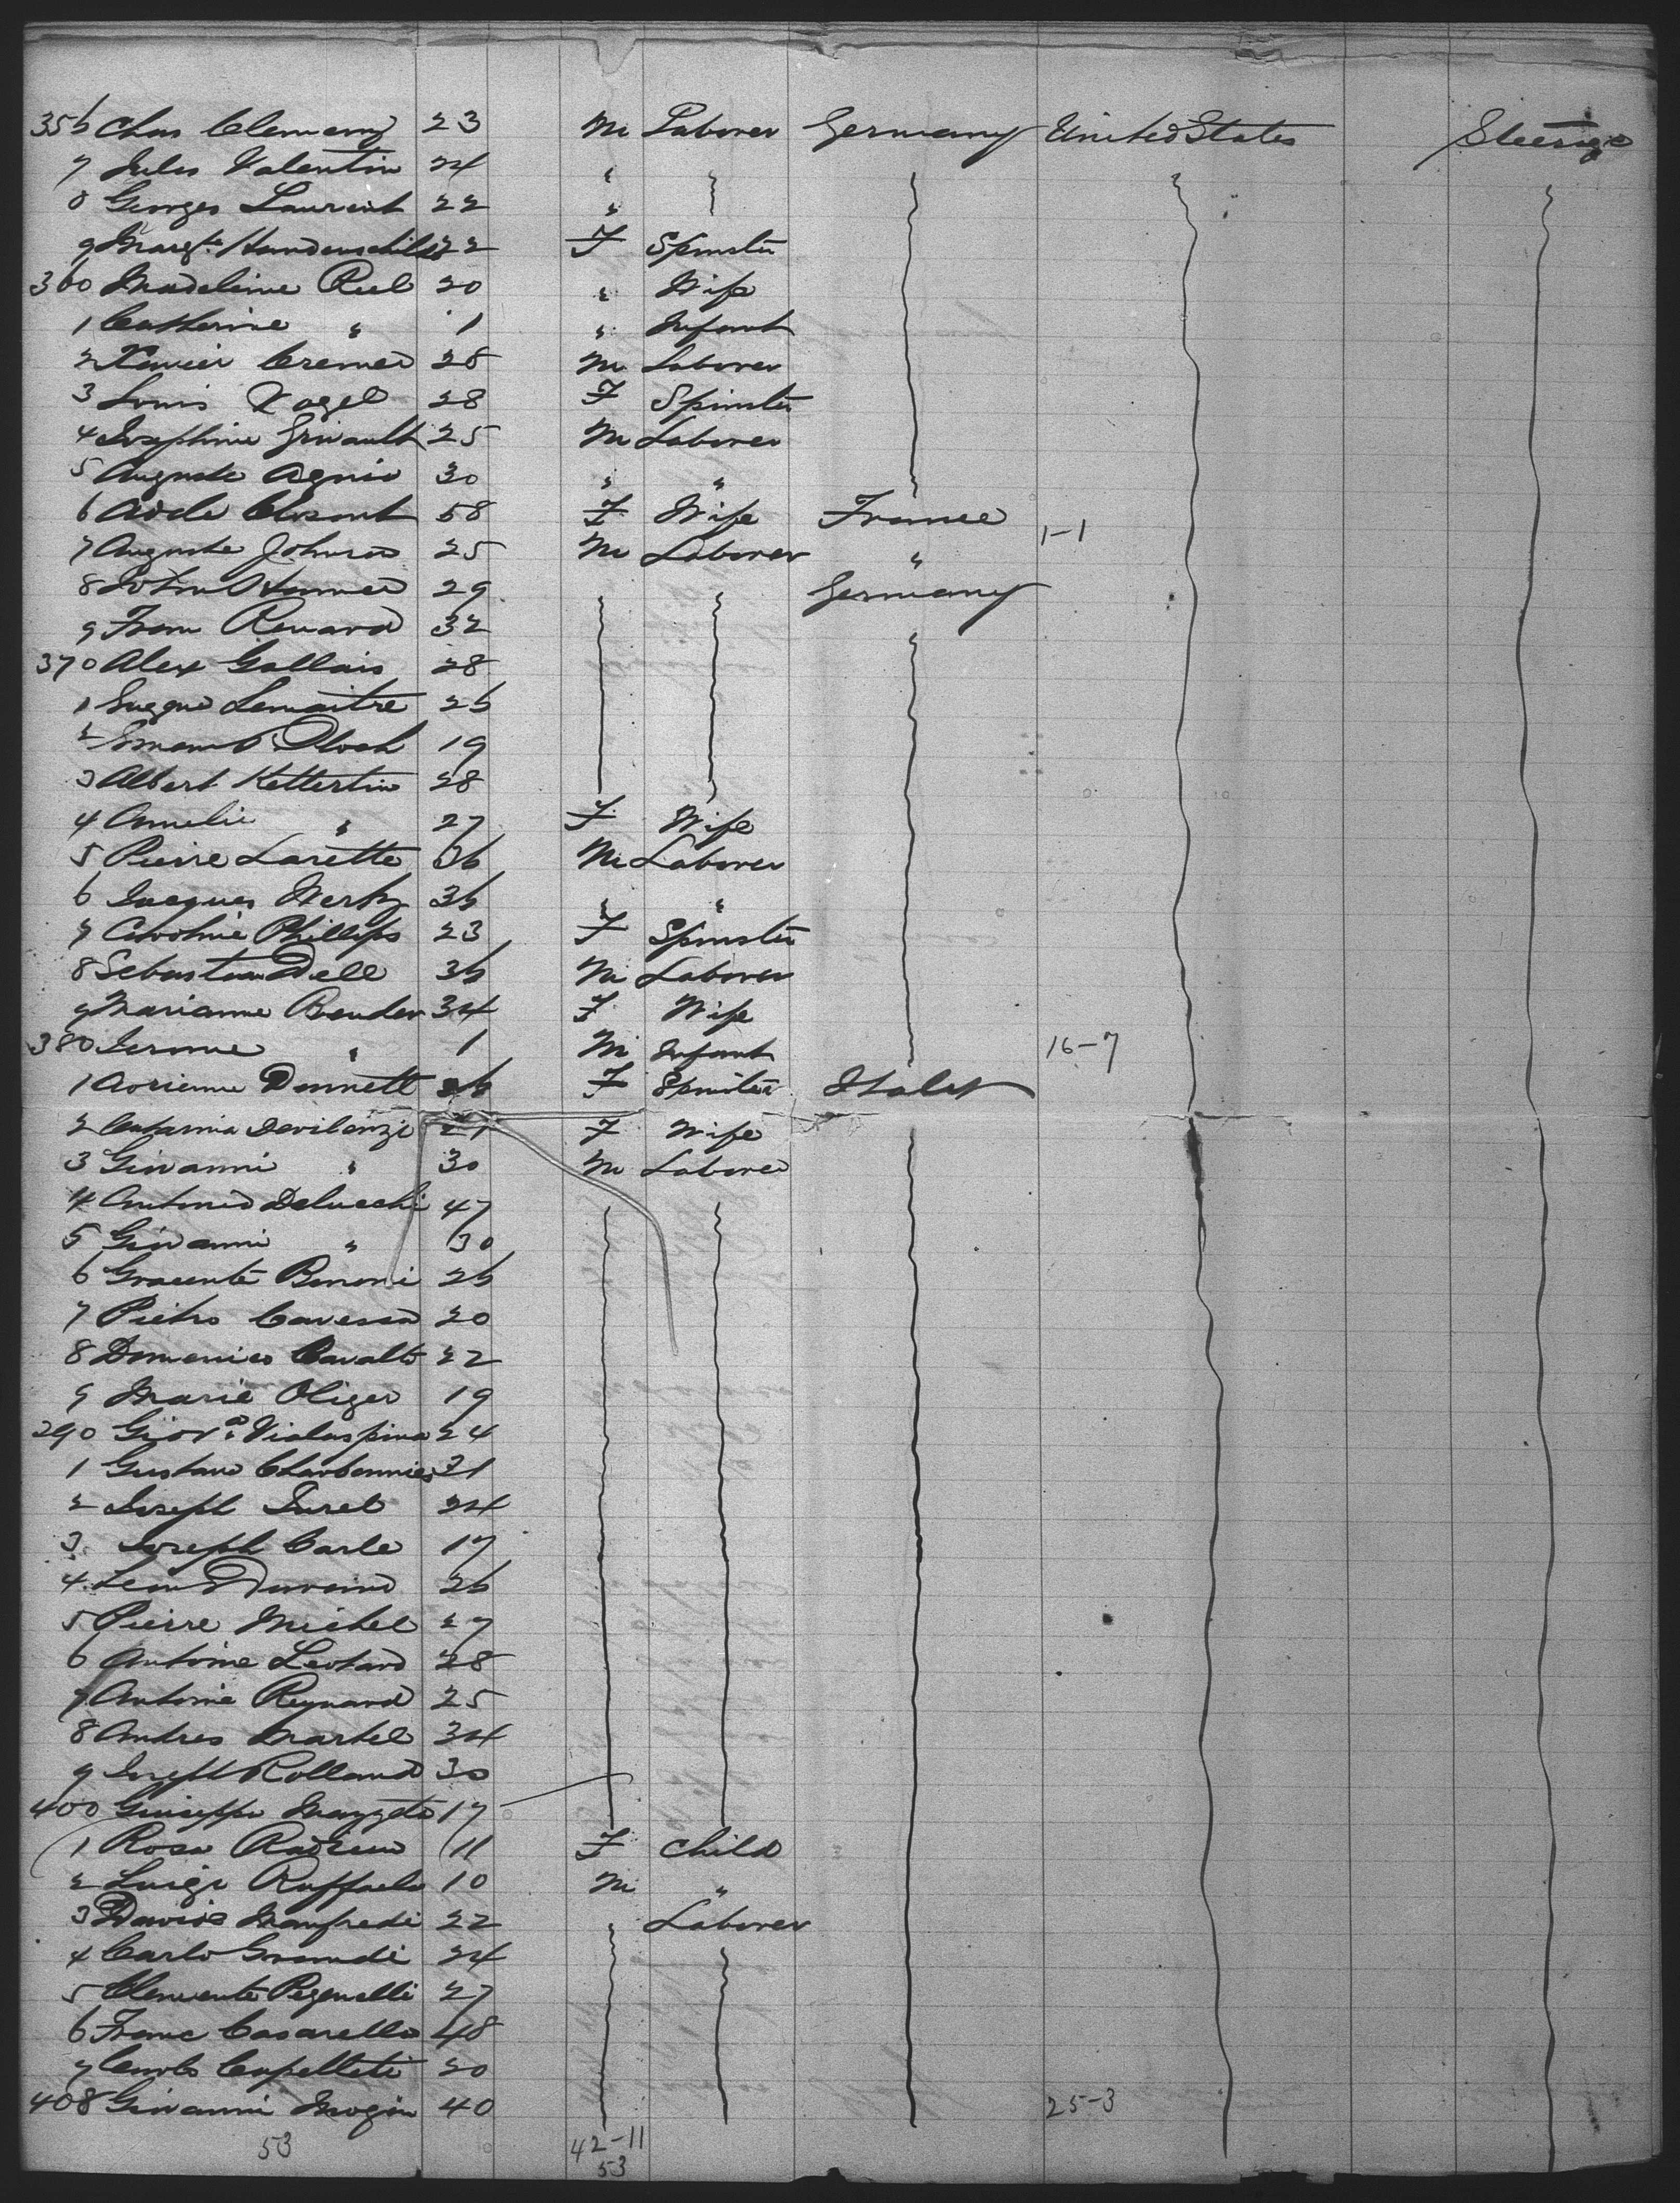 356 Chas Clemens 23 M Laborer Germany United States Steerage
7 Jules Valentin 24 " "
8 Georges Laurent 22 "
9 Margte 22 F Spinster
360 Madeline Reel 20 " Wife
1 Catherine " 1 " Infant
2 Xavier Cremer 28 M Laborer
3 Louis Vogel 28 F Spinster
4 Josephine 25 M Laborer
5 Auguste Agnio 30 " "
6 58 F Wife France
1-1
7 Auguste 25 M Laborer "
8 John 29 Germany
9 Renard 32
370 Alex Gallais 28
1 Lemaitre 26
2 Bloch 19
3 Albert Ketterlin 28
4 Amelie " 27 F Wife
5 Pierre Larette 36 M Laborer
6 Jacques 36 " "
7 Caroline Phillips 23 F Spinster
8 Sebastian Dell 36 M Laborer
9 Marianne Bender 34 F Wife
380 Jerome " 1 M Infant 16-7
1 Adrienne Donnett 26 F Spinster Italy
2 Catarina 21 F Wife
3 Giovanni " 30 M Laborer
4 Antonio Delucchi 47
5 Giovanni " 30
6 26
7 Pietro 20
8 Domenico Cavalto 22
9 Marie Oliger 19
290 Giova Vialaspina 24
1 Gustave Charbonnier 21
2 Joseph Surel 24
3 Joseph Carle 17
4 Leon Durand 26
5 Pierre Michel 27
6 Antoine Leotard 28
7 Antoine Reynard 25
8 Andres Martel 34
9 Joseph Rolland 30
400 Giuseppe 17
1 Rosa 11 F Child
2 Luigi Raffaelo 10 M "
3 Manfredi 22 " Laborer
4 Carlo 24
5 Clemente 27
6 Franc Casarello 48
7 Carlo Capelleti 20
408 Giovanni 40 25-3
53 42-11
53